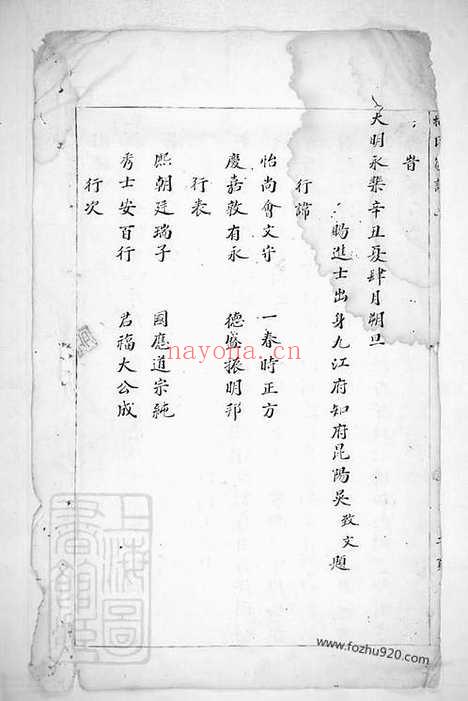 昔
大明永樂辛丑夏肆月朔旦
賜進士出身九江府知府昆陽吳致文題
行諱
怡尚會文守 一春時正方
慶嘉敦有永 德盛振明邦
行表
熙朝廷瑞子 國應道宗純
秀士安百行 君福大公成
行次
nayona.cn
上海圖書館藏
www.fozhu920.com